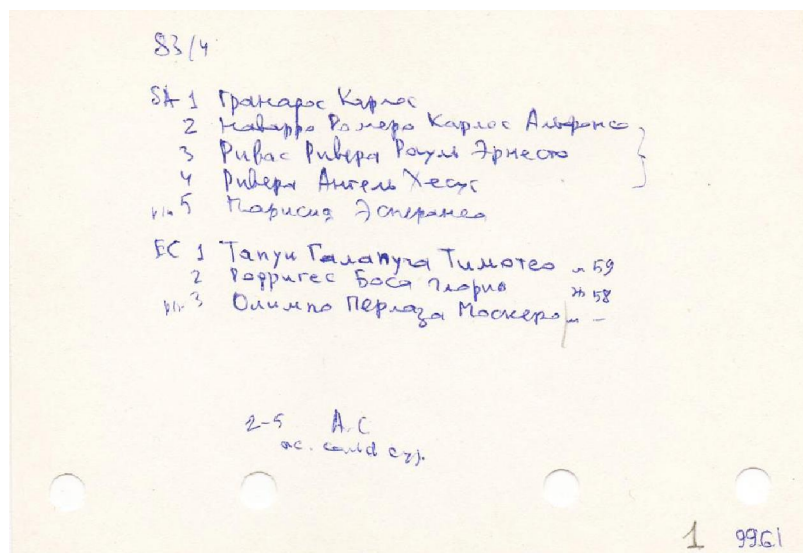 83/4
SA 1 Гранадос Карлос
2 Наварро Ромеро Карлос Альфонсо
3 Ривас Ривера Рауль Эрнесто
4 Ривера Ангель Хесус
5 Парисид Эсперанса
EC 1 Тапуи Галапуча Тимотео м 59
2 Родригес Боса Глория ж 58
3 Олимпо Перлаза Москеро м -
2-5 А.С
1 9961